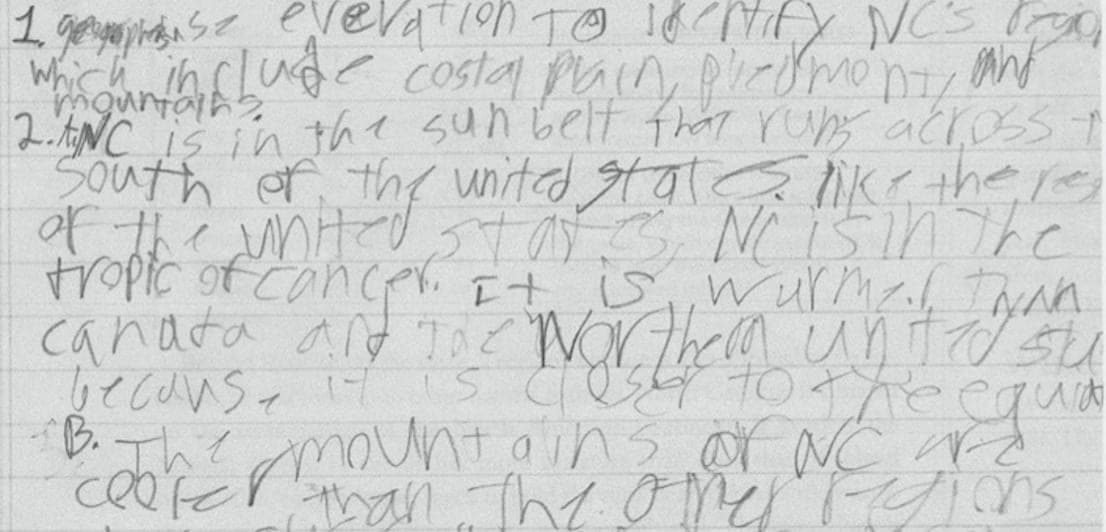 1. use evevation to identify NC's
which include costal plain, piedmont, and
mountains.
2. NC is in the sun belt that runs across
south of the united states. like the
of the united states, NC is in the
tropic of cancer. It is wurmer than
canada and the Northern united
because it is closer to the
B. The mountains of NC are
cooler than the other regions